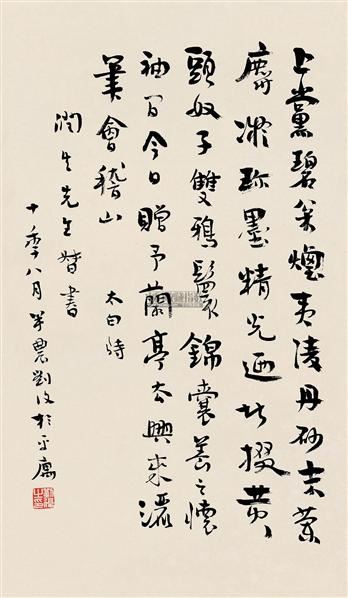 上黨碧枀煙夷陵丹砂末蘭
麝凝珍墨精光迺堪掇黃
頭奴子雙鴉鬟錦囊養之懷
袖間今日贈予蘭亭去興來灑
筆會稽山 太白詩
潤生先生督書
十年八月半農劉復於平寓